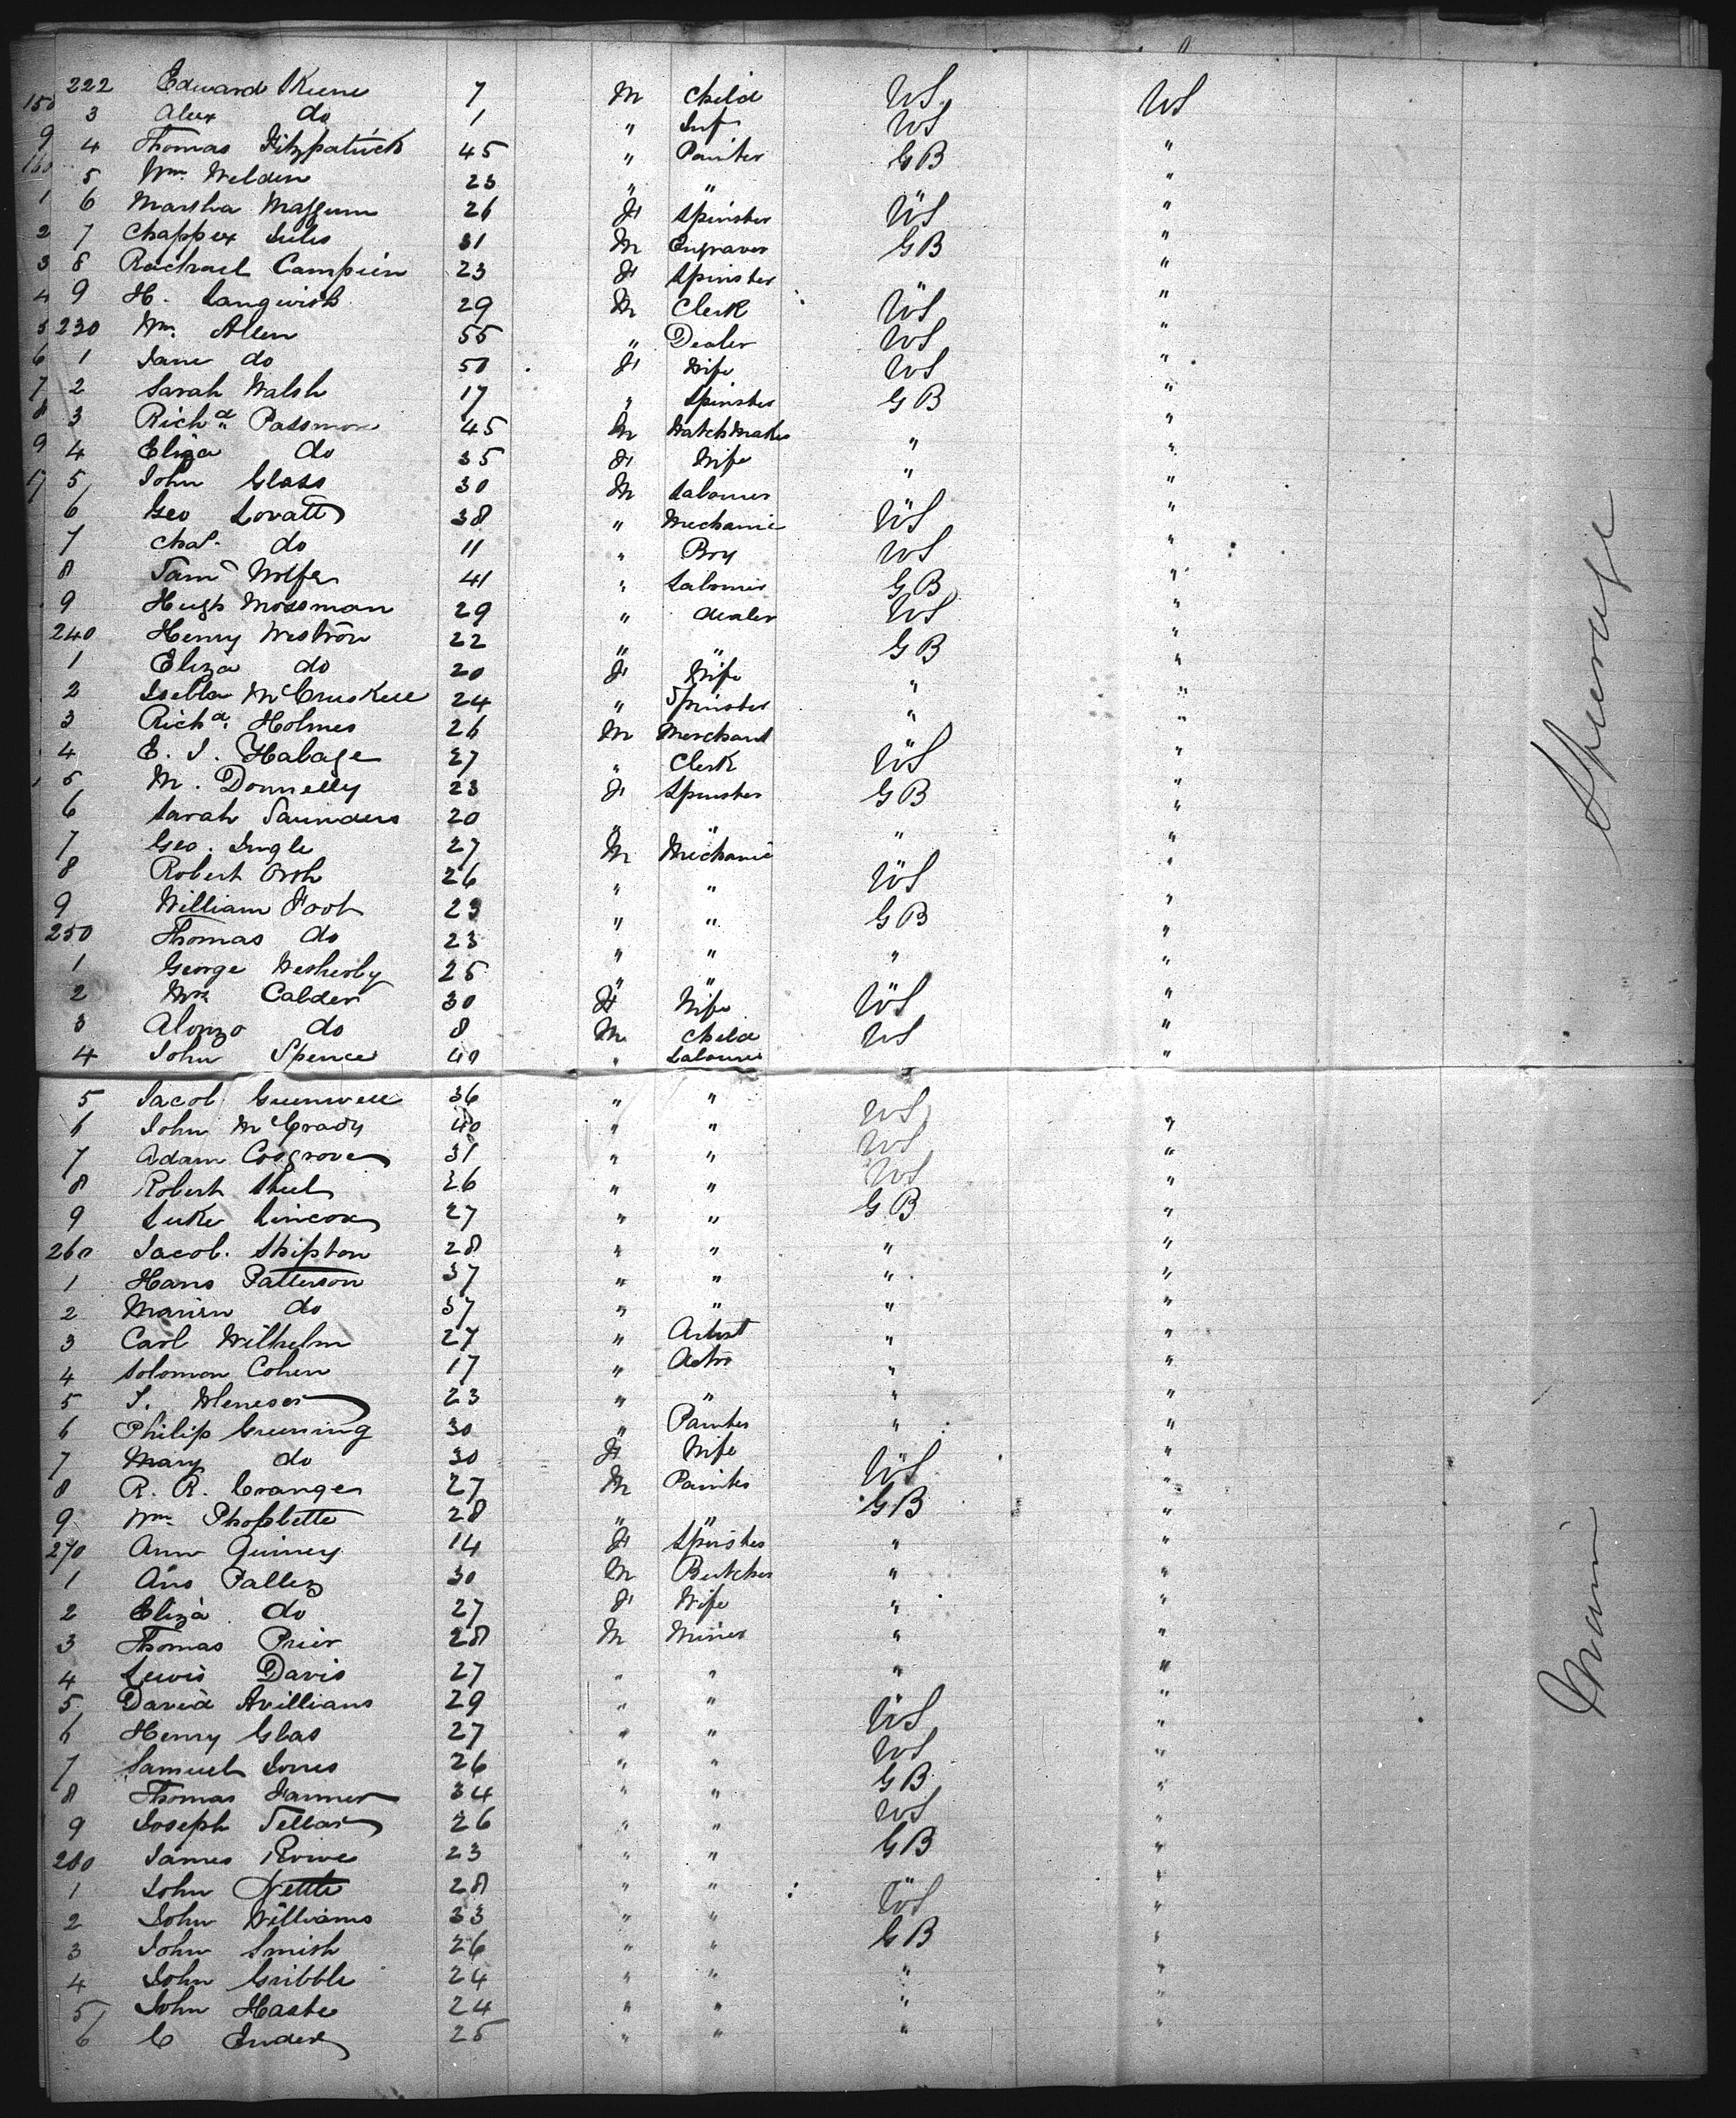 222 Edward Keene 7 M Child US US
150 3 Alex do 1 " Inf US
9 4 Thomas Fitzpatrick 45 " Painter GB "
160 5 Wm Welden 23 " " "
1 6 Marsha 26 F Spinster US "
2 7 Chappex Jules 31 M Engraver GB "
3 8 Rachael Campien 23 F Spinster "
4 9 H. Langwish 29 M Clerk US "
5 230 Wm. Allen 55 " Dealer US "
6 1 Jane do 50 F Wife US "
7 2 Sarah Walsh 17 " Spinster GB "
8 3 Richd Passmore 45 M Watch Maker "
9 4 Eliza do 35 F Wife " "
17 5 John Glass 30 M Labourer " "
6 Geo Lovatt 38 " Mechanic US "
7 Chas. do 11 " Boy US "
8 Saml Wolfe 41 " Labourer GB "
9 Hugh Mossman 29 " dealer US "
240 Henry Westron 22 " " GB "
1 Eliza do 20 F Wife "
2 Isella McCruskell 24 " Spinster " "
3 Richd. Holmes 26 M Merchant " "
4 E. J. Habage 27 " Clerk US "
5 M. Donnelly 23 F Spinster GB "
6 Sarah Saunders 20 " " "
7 Geo. Ingle 27 M Mechanic " "
8 Robert Orsh 26 " " US "
9 William Foot 23 " " GB "
250 Thomas do 23 " " "
1 George Wetherby 25 " " " "
2 Mrs Calder 30 F Wife US "
3 Alonzo do 8 M Child US "
4 John Spence 40 " Labourer "
5 Jacob Greenwell 36 " " US
6 John McGrady 40 " " US "
7 Adam Cosgrove 31 " " US "
8 Robert Steel 26 " " GB "
9 Luke Lincox 27 " " "
260 Jacob. Shipton 28 " " " "
1 Hans Patterson 37 " " " "
2 Marien do 37 " " " "
3 Carl Wilhelm 27 " Artist " "
4 Solomon Cohen 17 " Actor " "
5 J. Meneses 23 " " " "
6 Philip Greening 30 " Painter " "
7 Mary do 30 F Wife US "
8 R. R. Cranger 27 M Painter GB "
9 Wm. 28 " " "
270 Ann Quiney 14 F Spinster " "
1 30 M Butcher " "
2 Eliza do 27 F Wife " "
3 Thomas Prier 28 M Miner " "
4 Lewis Davis 27 " " " "
5 David Avillians 29 " " US "
6 Henry Glas 27 " " US "
7 Samuel Jones 26 " " GB "
8 Thomas Farmer 34 " " US "
9 Joseph Tellar 26 " " GB "
280 James Rowe 23 " " "
1 John Nettle 28 " " US "
2 John Williams 33 " " GB "
3 John Smith 26 " " "
4 John Gribble 24 " " " "
5 John Haste 24 " " " "
6 C Index 25 " " " "
Steerage
Main